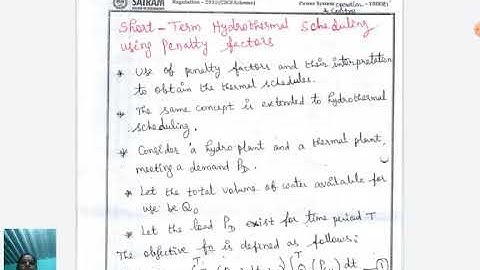 SAIRAM
Regulation - 2021(CBCS Scheme)
Power System operation -
& control
Short-Term Hydrothermal Scheduling
using Penalty factors
* Use of penalty factors and their interpretation
to obtain the thermal schedules.
* The same concept is extended to hydrothermal
scheduling.
* Consider a hydro plant and a thermal plant,
meeting a demand PD.
* Let the total volume of water available for
use be Q0
* Let the load PD exist for time period T
The objective fn is defined as follows: